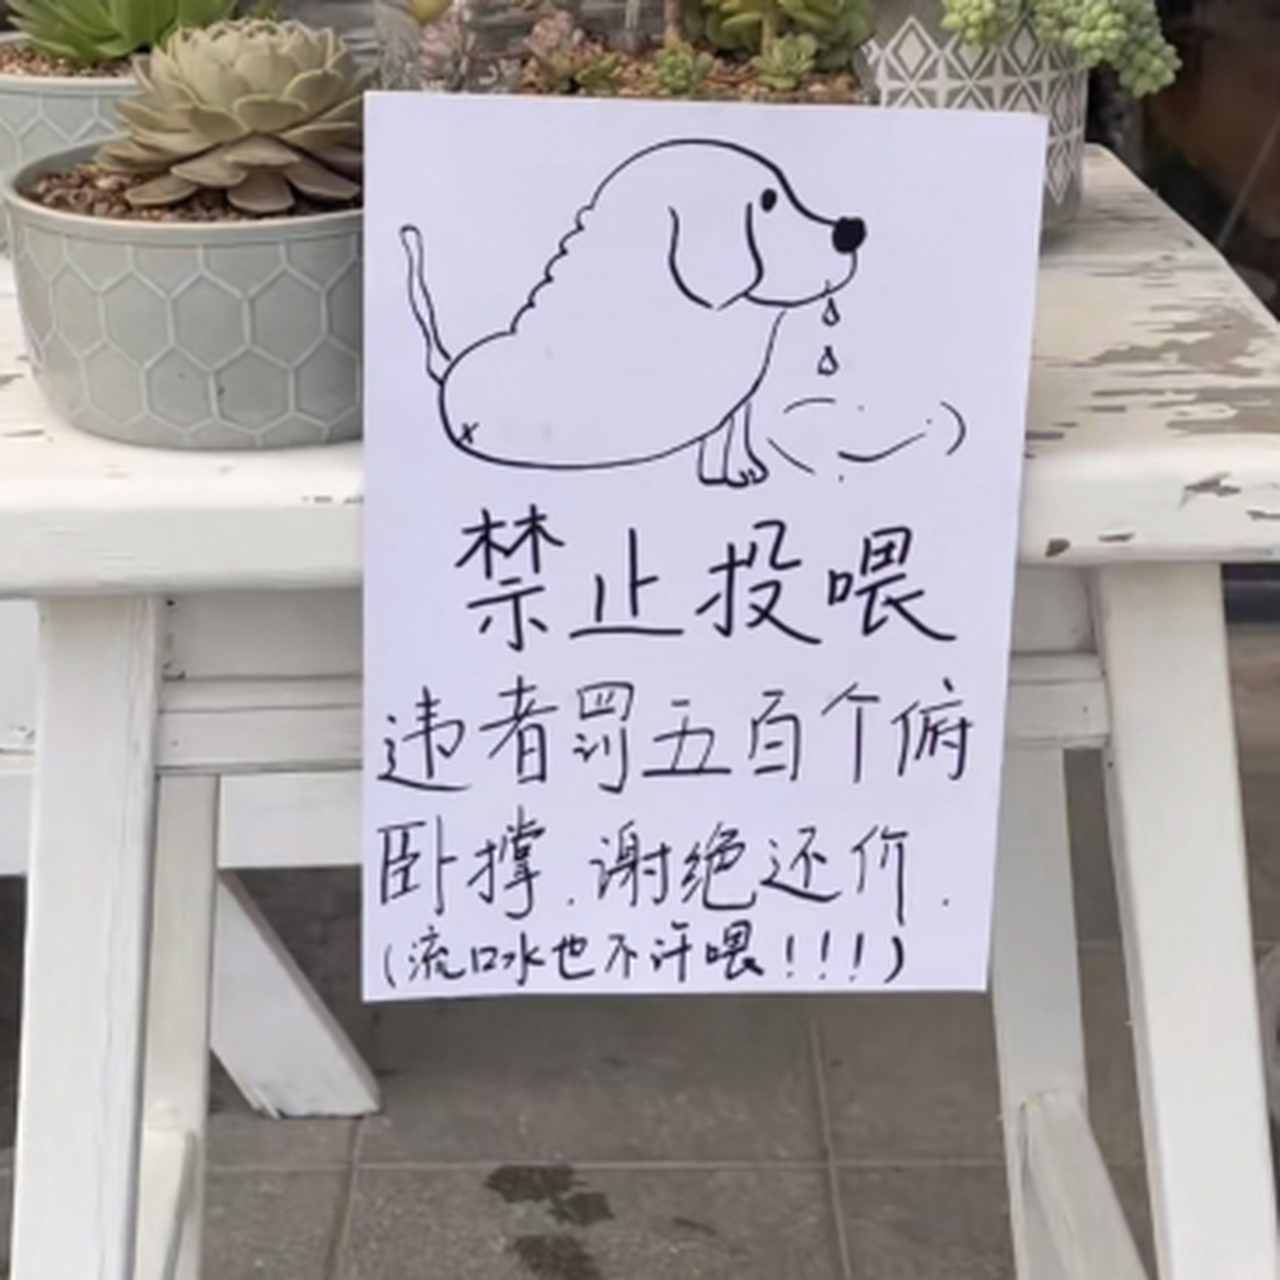 禁止投喂
违者罚五百个俯
卧撑.谢绝还价.
(流口水也不许喂!!!)